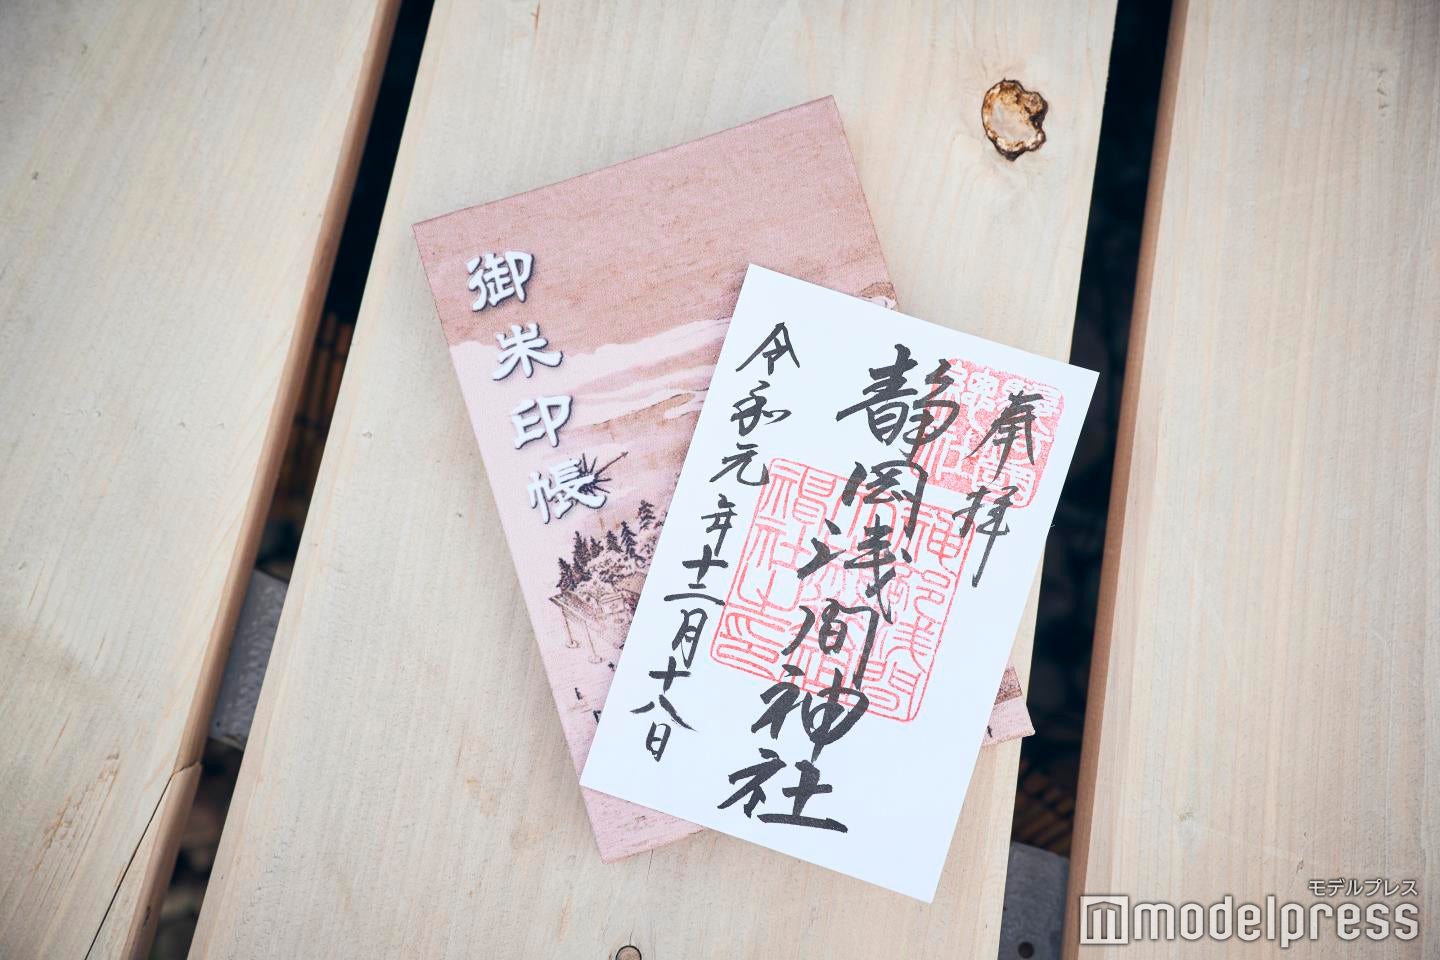 御朱印帳
奉拝
静岡浅間神社
令和元年十二月十八日
モデルプレス
modelpress